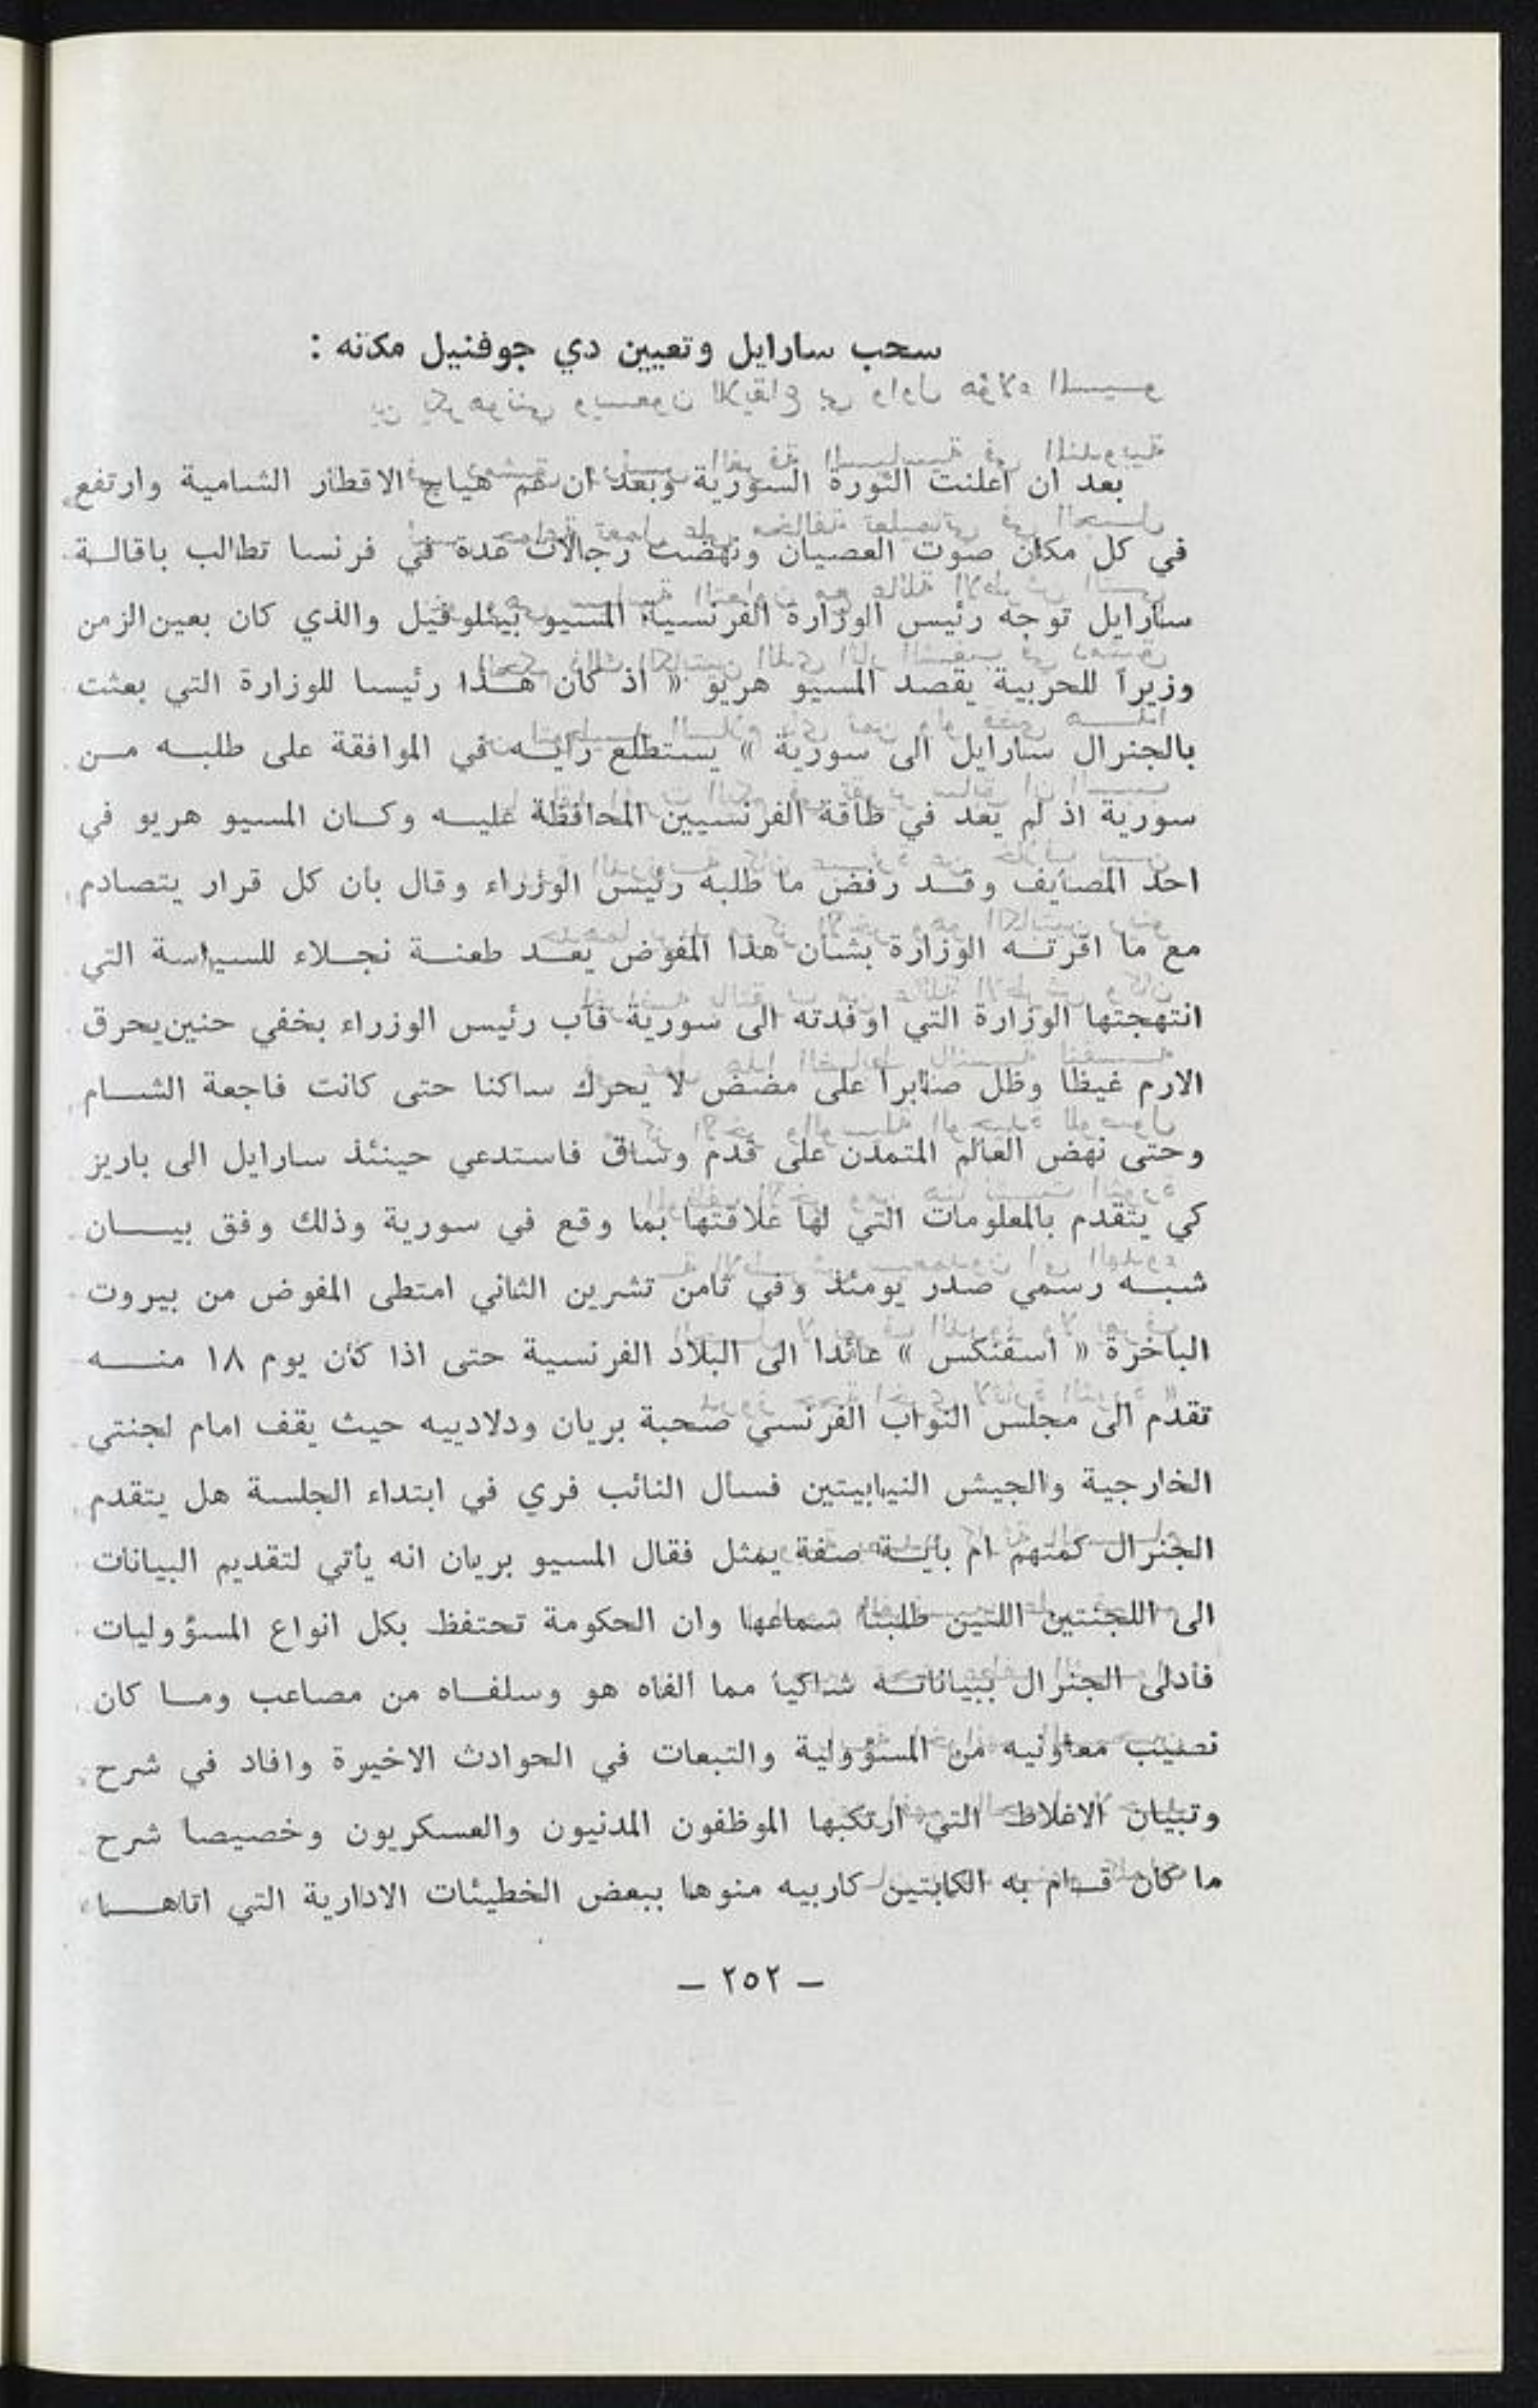 سحب سارايل وتعيين دي جوفنيل مكانه :
بعد ان اعلنت الثورة السورية وبعد ان عم هياج الاقطار الشامية وارتفع
في كل مكان صوت العصيان ونهضت رجالات عدة في فرنسا تطالب باقالة
سارايل توجه رئيس الوزارة الفرنسية المسيو بينلوفيل والذي كان بعين الزمن
وزيراً للحربية يقصد المسيو هريو « اذ كان هذا رئيسا للوزارة التي بعثت
بالجنرال سارايل الى سورية » يستطلع رايه في الموافقة على طلبه من
سورية اذ لم يعد في طاقة الفرنسيين المحافظة عليه وكان المسيو هريو في
احد المصايف وقد رفض ما طلبه رئيس الوزراء وقال بأن كل قرار يتصادم
مع ما اقرته الوزارة بشأن هذا المفوض يعد طعنة نجلاء للسياسة التي
انتهجتها الوزارة التي اوفدته الى سورية فآب رئيس الوزراء بخفي حنين يحرق
الارم غيظا وظل صابرا على مضض لا يحرك ساكنا حتى كانت فاجعة الشام
وحتى نهض العالم المتمدن على قدم وساق فاستدعي حينئذ سارايل الى باريز
كي يتقدم بالمعلومات التي لها علاقتها بما وقع في سورية وذلك وفق بيان
شبه رسمي صدر يومئذ وفي ثامن تشرين الثاني امتطى المفوض من بيروت
الباخرة « اسفنكس » عائدا الى البلاد الفرنسية حتى اذا كان يوم ١٨ منه
تقدم الى مجلس النواب الفرنسي صحبة بريان ودلادييه حيث يقف امام لجنتي
الخارجية والجيش النيابيتين فسأل النائب فري في ابتداء الجلسة هل يتقدم
الجنرال كمتهم ام بأية صفة يمثل فقال المسيو بريان انه يأتي لتقديم البيانات
الى اللجنتين اللتين طلبتا سماعها وان الحكومة تحتفظ بكل انواع المسؤوليات
فأدلى الجنرال ببياناته شاكيا مما الفاه هو وسلفاه من مصاعب وما كان
نصيب معاونيه من المسؤولية والتبعات في الحوادث الاخيرة وافاد في شرح
وتبيان الاغلاط التي ارتكبها الموظفون المدنيون والعسكريون وخصيصا شرح
ما كان قام به الكابتين كاربيه منوها ببعض الخطيئات الادارية التي اتاها
– ٢٥٢ –